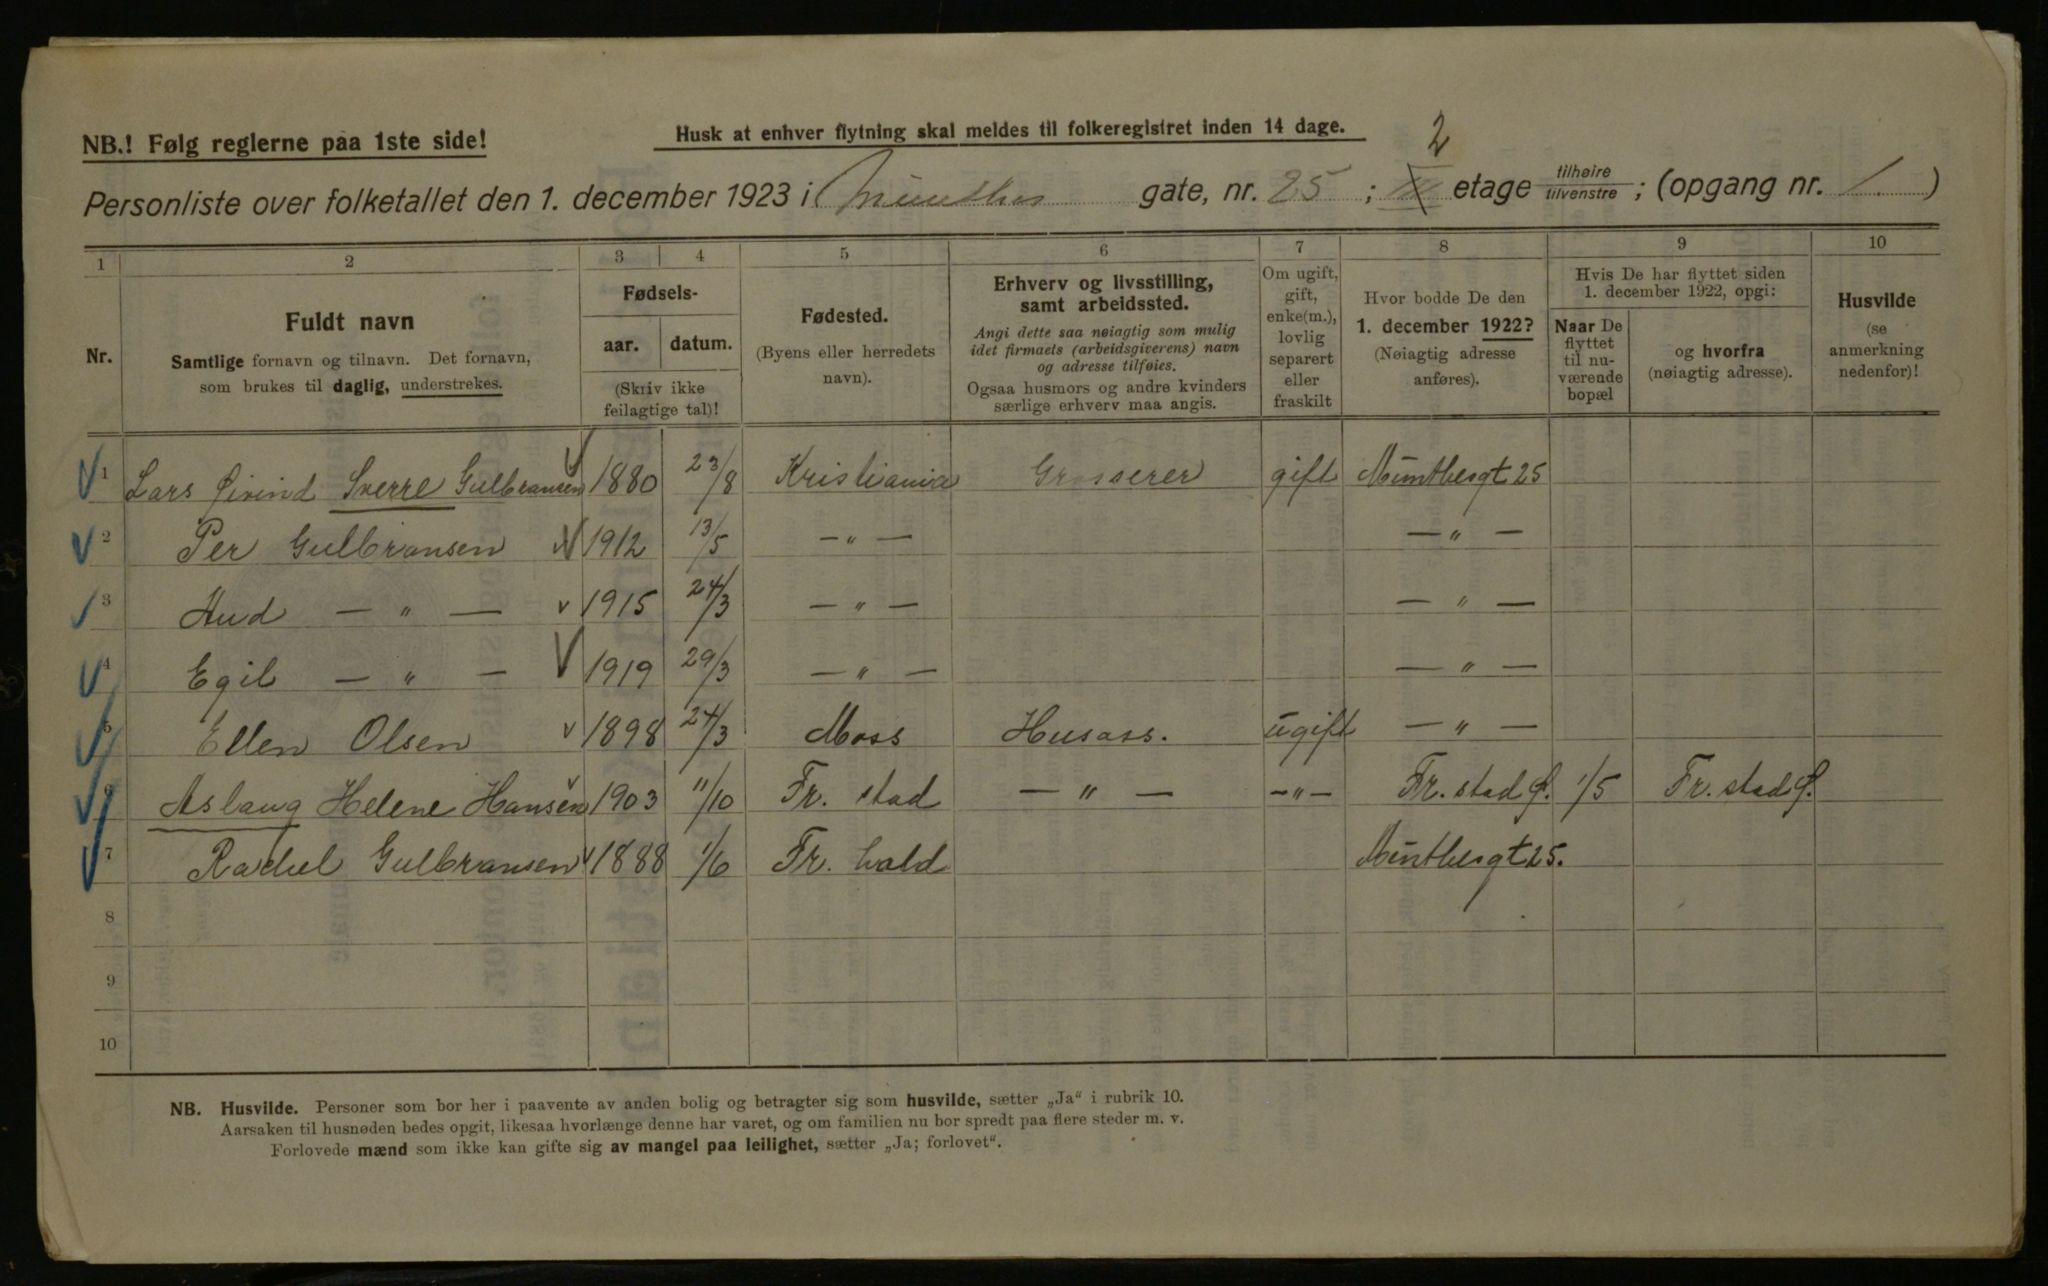 NB.! Følg reglerne paa 1ste side!
Husk at enhver flytning skal meldes til folkeregistret inden 14 dage.
2
Personliste over folketallet den 1. december 1923 i Munthes gate, nr. 25 ; III etage tilhøire tilvenstre ; (opgang nr. 1. )
1 2 3 4 5 6 7 8 9 10
Nr.
Fuldt navn
Samtlige fornavn og tilnavn. Det fornavn,
som brukes til daglig, understrekes.
Fødsels-
aar. datum.
(Skriv ikke
feilagtige tal)!
Fødested.
(Byens eller herredets
navn).
Erhverv og livsstilling,
samt arbeidssted.
Angi dette saa nøiagtig som mulig
idet firmaets (arbeidsgiverens) navn
og adresse tilføies.
Ogsaa husmors og andre kvinders
særlige erhverv maa angis.
Om ugift,
gift,
enke(m.),
lovlig
separert
eller
fraskilt
Hvor bodde De den
1. december 1922?
(Nøiagtig adresse
anføres).
Hvis De har flyttet siden
1. december 1922, opgi:
Naar De
flyttet
til nu-
værende
bopæl
og hvorfra
(nøiagtig adresse).
Husvilde
(se
anmerkning
nedenfor)!
1 Lars Øivind Sverre Gulbransen 1880 23/8 Kristiania Grosserer gift Muntbesgt 25
2 Per Gulbransen 1912 13/5 — " — — " —
3 Aud — " — 1915 24/3 — " — — " —
4 Egil — " — 1919 29/3 — " — — " —
5 Ellen Olsen 1898 24/3 Moss Husass. ugift — " —
6 Aslaug Helene Hansen 1903 11/10 Fr. stad — " — — " — Fr. stad Ø. 1/5 Fr. stad Ø.
7 Rachel Gulbransen 1888 1/6 Fr. hald Muntbesgt 25.
8
9
10
NB. Husvilde. Personer som bor her i paavente av anden bolig og betragter sig som husvilde, sætter „Ja“ i rubrik 10.
Aarsaken til husnøden bedes opgit, likesaa hvorlænge denne har varet, og om familien nu bor spredt paa flere steder m. v.
Forlovede mænd som ikke kan gifte sig av mangel paa leilighet, sætter „Ja; forlovet“.